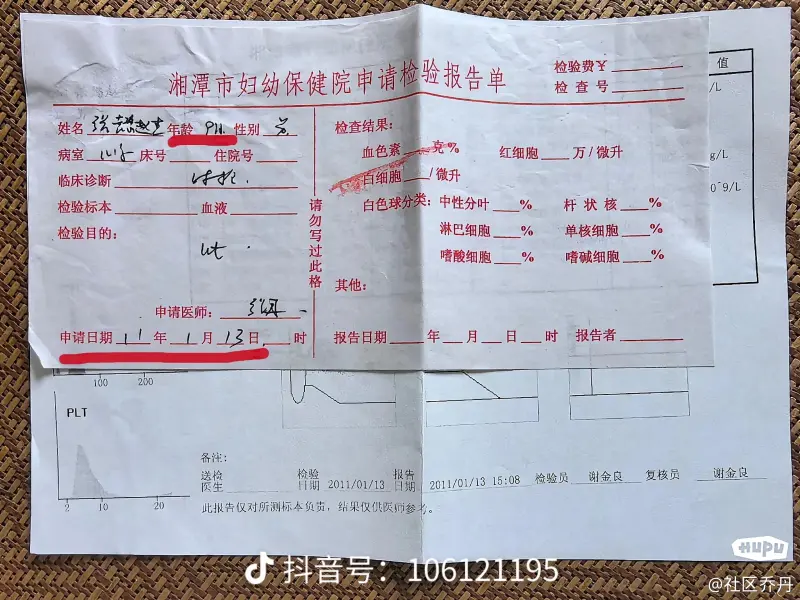 湘潭市妇幼保健院申请检验报告单
检验费¥
检 查 号
姓名 年龄 性别
病室 床号 住院号
临床诊断
检验标本 血液
检验目的:
申请医师:
申请日期 11 年 1 月 13 日 时
请勿写过此格
检查结果:
血色素 克% 红细胞 万/微升
白细胞 /微升
白色球分类: 中性分叶 % 杆状核 %
淋巴细胞 % 单核细胞 %
嗜酸细胞 % 嗜碱细胞 %
其他:
报告日期 年 月 日 时 报告者
值
/L
g/L
0^9/L
100 200
PLT
2 10 20
备注:
送检医生 检验日期 2011/01/13 报告日期 2011/01/13 15:08 检验员 谢金良 复核员 谢金良
此报告仅对所测标本负责,结果仅供医师参考。
抖音号: 106121195
HUPU
@社区乔丹